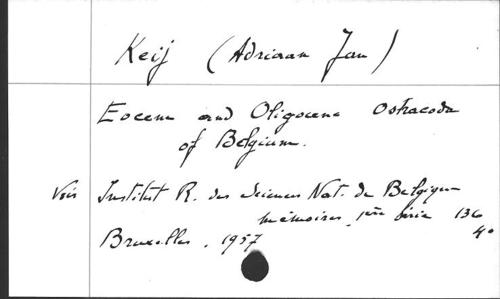 Keij (Adriaan Jan)
Eocene and Oligocene Ostracoda
of Belgium.
Voir Institut R. des Sciences Nat. de Belgique
mémoires, 1ère série 136
Bruxelles, 1957 4°